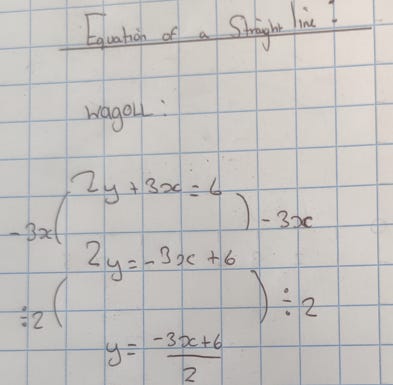 Equation of a Straight line:
WAGOLL:
2y + 3x = 6
-3x ( ) -3x
2y = -3x + 6
÷2 ( ) ÷2
y = -3x+6
2